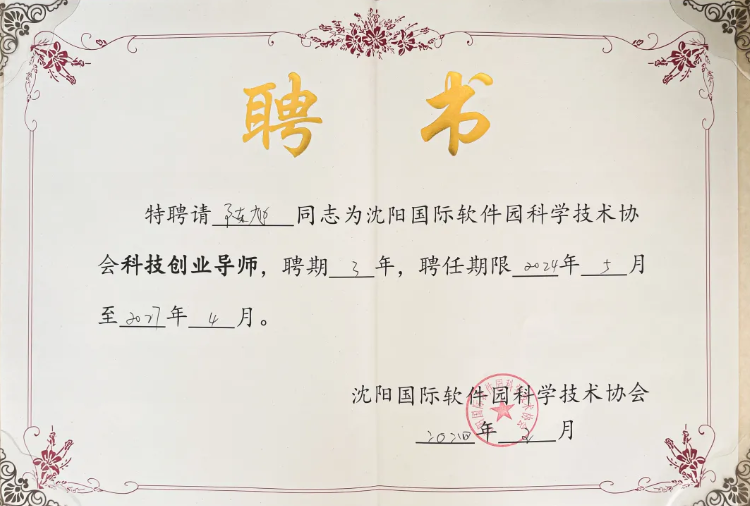 聘 书
特聘请 同志为沈阳国际软件园科学技术协
会科技创业导师，聘期 3 年，聘任期限 2024 年 5 月
至 2027 年 4 月。
沈阳国际软件园科学技术协会
2024 年 月